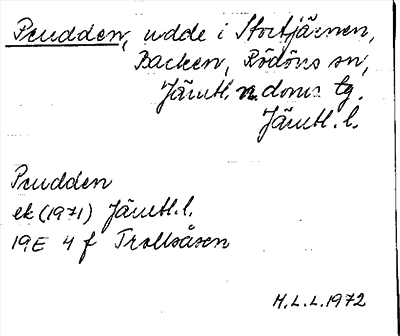 Prudden, udde i Stortjärnen,
Backen, Rödöns sn,
Jämtl. n. doms tg.
Jämtl. l.
Prudden
ek (1971) Jämtl. l.
19E 4 f Trollsåsen
H.L.L. 1972